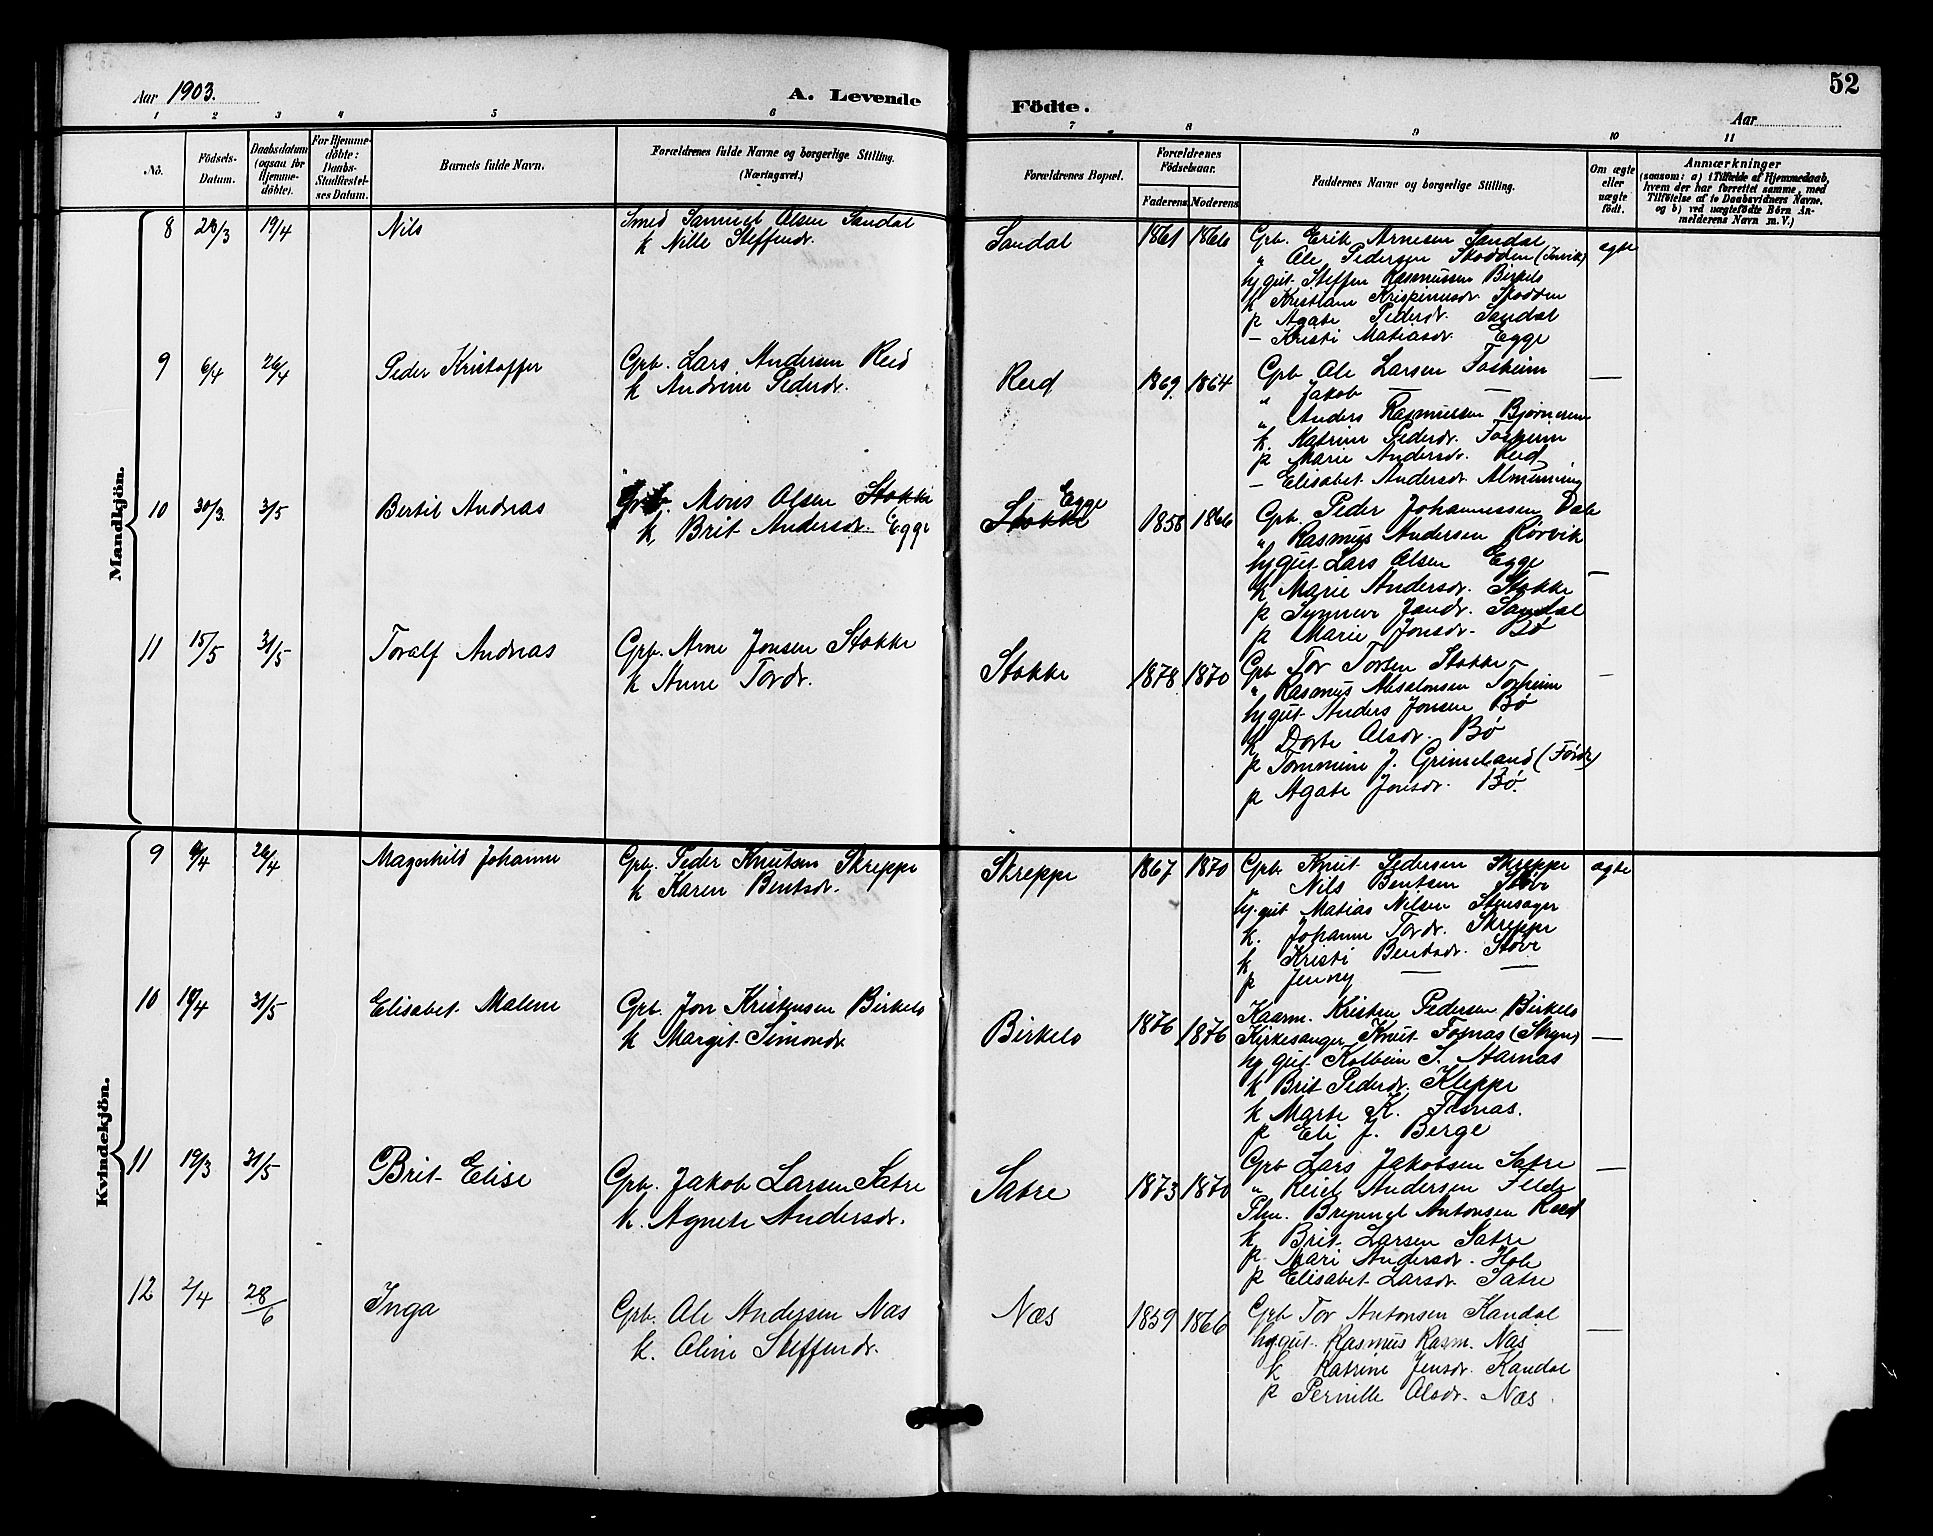 52
Aar 1903.
A. Levende
Födte.
Aar
1 2 3 4 5 6
7 8 9 10 11
No.
Födsels-Datum.
Daabsdatum (ogsaa for Hjemme-döbte).
For Hjemme-döbte: Daabs-Stadfæstel-ses Datum.
Barnets fulde Navn.
Forældrenes fulde Navne og borgerlige Stilling.
(Næringsvei.)
Forældrenes Bopæl.
Forældrenes Födselsaar.
Faderens Moderens
Faddernes Navne og borgerlige Stilling.
Om ægte eller uægte født.
Anmærkninger
(saasom: a) i Tilfælde af Hjemmedaab,
hvem der har forrettet samme, med
Tilføielse af to Daabsvidners Navne.
og b) ved uægtefödte Börn An-
melderens Navn m. V.)
Mandkjön.
8 19/4 Nils
Smed Samuel Olsen Sandal
k Nille Steffensdr.
Sandal 1861 1866
Grb. Erik Arnesen Sandal
" Ole Pedersen Skodden (Invik)
hj gut. Steffen Rasmussen Birkelo
k Kristiane Krispinusdr. Skodden
p Agate Pedersdr. Sandal
– Kristi Matiasdr. Egge
ægte
9 6/4 26/4 Peder Kristoffer
Grb. Lars Andersen Reid
k Andrine Pedersdr.
Reid 1869 1864
Grb Ole Larsen Fosheim
" Jakob — —
" Anders Rasmussen Bjørnereim
k. Katrine Pedersdr. Fosheim
p Marie Andersdr. Reid
– Elisabet Andersdr Almenning
—
10 30/3 3/5 Bertil Andreas
Grb. Mons Olsen Stokke
k, Brit Andersdr. Egge
Egge
Stokke 1858 1866
Grb. Peder Johannessen Dale
" Rasmus Andersen Rørvik
hj gut Lars Olsen Egge
k Marie Andersdr. Stokke
p Synneve Jansdr. Sandal
p Marie Jonsdr. Bø
—
11 15/5 31/5 Toralf Andreas
Grb. Arne Jonsen Stokke
k Anne Torsdr.
Stokke 1878 1870
Grb Tor Torsen Stokke
" Rasmus Absalonsen Fosheim
hj gut Anders Jonsen Bø
k Dorte Olsdr. Bø
p Tommine J. Grimeland (Førde)
p Agate Jonsdr. Bø.
—
Kvindekjön.
9 26/4 Magnhild Johanne
Grb. Peder Knutsen Skreppe
k Karen Bentsdr.
Skreppe 1867 1870
Grb. Knut Pedersen Skreppe
" Nils Bentsen Støve
hj. gut Matias Nilsen
k. Johanne Torsdr. Skreppe
k Kristi Bentsdr. Støve
p Jenny — —
ægte
10 19/4 31/5 Elisabet Malene
Grb. Jon Kristensen Birkelo
k Margit Simonsdr
Birkelo 1876 1876
Kaarm. Kristen Pedersen Birkelo
Kirkesanger Knut Fosnæs (Stryn)
hj gut Kolbein S. Aarnæs
k Brit Pedersdr. Kleppe
k Marte K. Fosnæs.
p Eli J. Berge
—
11 19/3 31/5 Brit Elise
Grb. Jakob Larsen Sætre
k. Agnete Andersdr.
Sætre 1873 1870
Grb Lars Jakobsen Sætre
" Reiel Andersen Felde
Brynjel Antonsen Reed
k Brit Larsen Sætre
p. Mari Andersdr. Hole
p Elisabet Larsdr. Sætre
—
12 2/4 28/6 Inga
Grb. Ole Andersen Næs
k. Oline Steffensdr.
Næs 1859 1866
Grb Tor Antonsen Kandal
hj gut. Rasmus Rasm. Næs
k Katrine Jensdr. Kandal
p Pernille Olsdr. Næs.
—